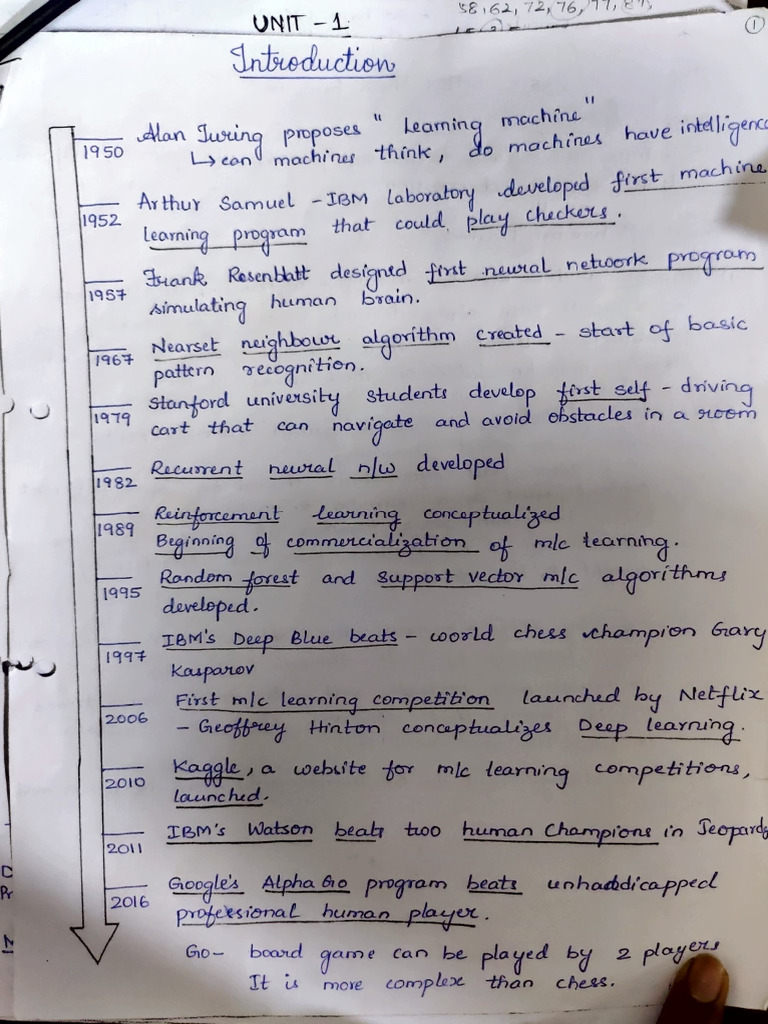 58, 62, 72, 76, 77, 87,
UNIT - 1
1
Introduction
1950
Alan Turing proposes " Learning machine"
↳ can machines think, do machines have intelligence
1952
Arthur Samuel - IBM laboratory developed first machine
learning program that could play checkers.
1957
Frank Rosenblatt designed first neural network program
simulating human brain.
1967
Nearset neighbour algorithm created - start of basic
pattern recognition.
1979
Stanford university students develop first self - driving
cart that can navigate and avoid obstacles in a room
1982
Recurrent neural n/w developed
1989
Reinforcement learning conceptualized
Beginning of commercialization of m/c learning.
1995
Random forest and support vector m/c algorithms
developed.
1997
IBM's Deep Blue beats - world chess champion Gary
Kasparov
2006
First m/c learning competition launched by Netflix
- Geoffrey Hinton conceptualizes Deep learning.
2010
Kaggle, a website for m/c learning competitions,
launched.
2011
IBM's Watson beats two human Champions in Jeopardy
2016
Google's Alpha Go program beats unhaddicapped
professional human player.
Go - board game can be played by 2 players
It is more complex than chess.